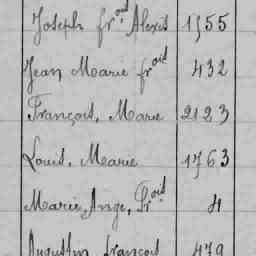 Joseph fr.ois Alexis 1555
Jean Marie fr.ois 432
François, Marie 2123
Louis, Marie 1763
Marie, Ange, Fr.ois 4
Augustin françois 479